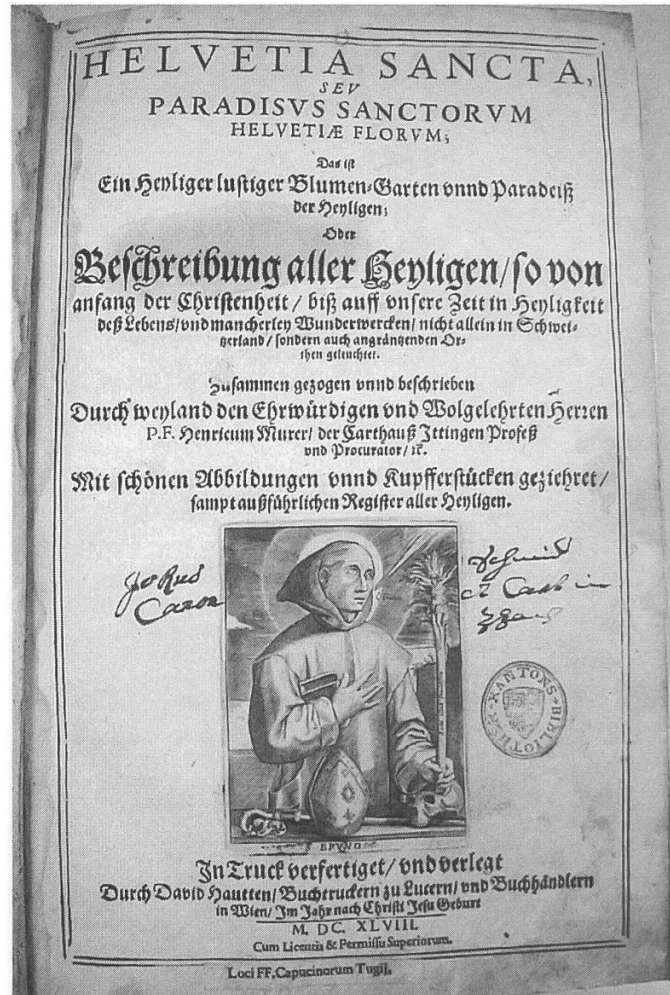 HELVETIA SANCTA,
SEV
PARADISVS SANCTORVM
HELVETIÆ FLORVM;
Das ist
Ein Heyliger lustiger Blumen-Garten vnnd Paradeiß
der Heyligen;
Oder
Beschreibung aller Heyligen/ so von
anfang der Christenheit/ biß auff vnsere Zeit in Heyligkeit
deß Lebens/ vnd mancherley Wunderwercken/ nicht allein in Schwei-
tzerland/ sondern auch angräntzenden Or-
then geleuchtet.
Zusammen gezogen vnnd beschrieben
Durch weyland den Ehrwürdigen vnd Wolgelehrten Herren
P.F. Henricum Murer/ der Carthauß Ittingen Profeß
vnd Procurator/ ıc.
Mit schönen Abbildungen vnnd Kupfferstücken geziehret/
sampt außführlichen Register aller Heyligen.
KANTONS-
BIBLIOTHEK
BRVNO
In Truck verfertiget/ vnd verlegt
Durch David Hautten/ Buchtruckern zu Lucern/ vnd Buchhändlern
in Wien/ Im Jahr nach Christi Jesu Geburt
M. DC. XLVIII.
Cum Licentia & Permissu Superiorum.
Loci FF, Capucinorum Tugij.